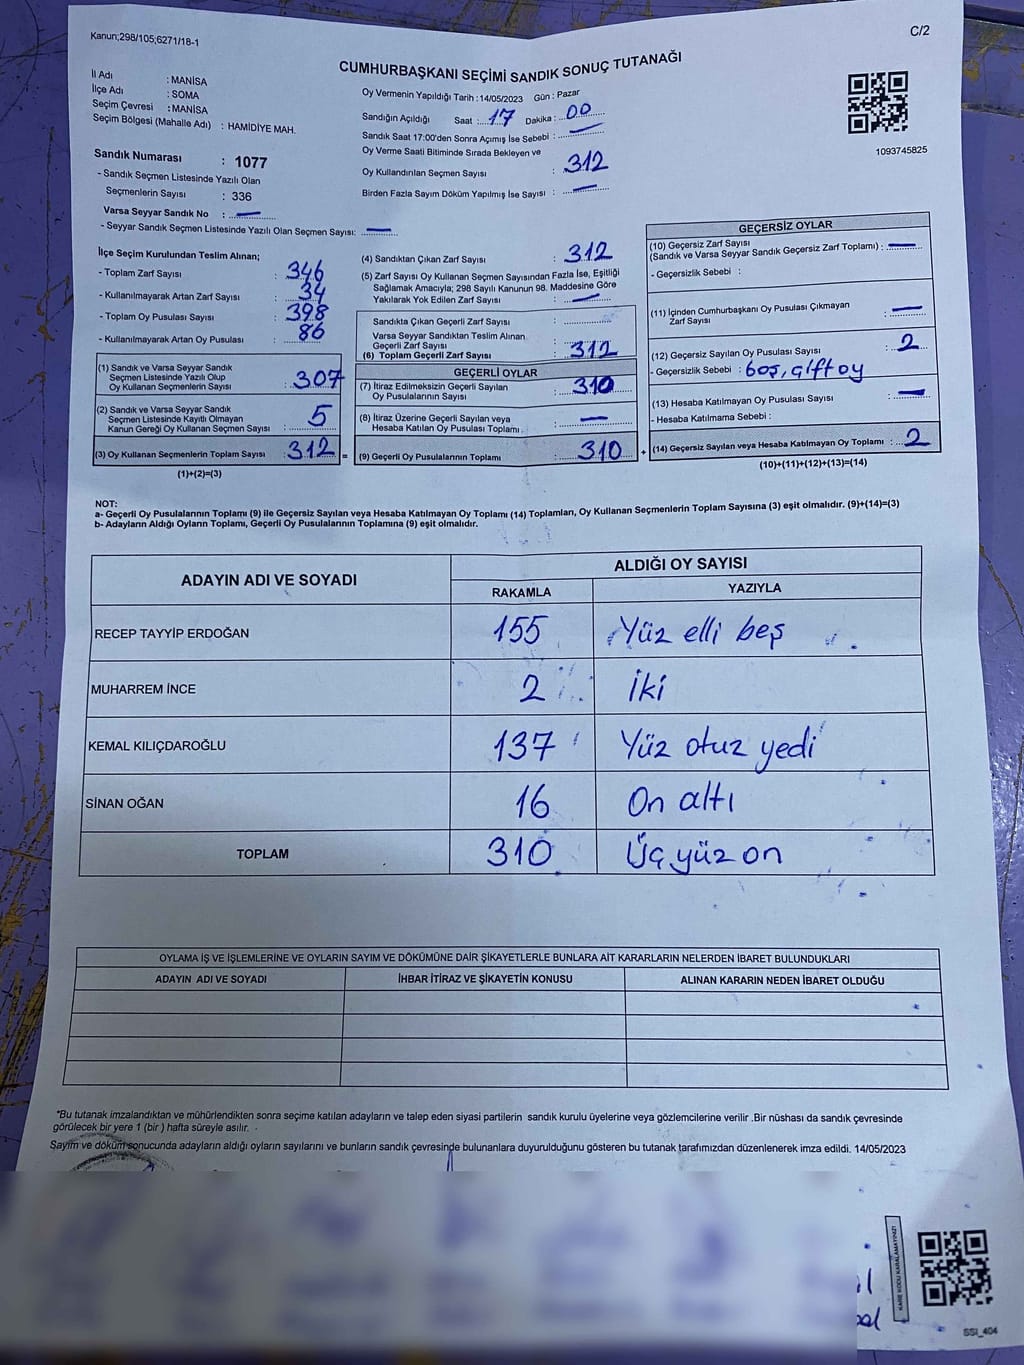 Kanun;298/105;6271/18-1
C/2
CUMHURBAŞKANI SEÇİMİ SANDIK SONUÇ TUTANAĞI
İl Adı : MANİSA
İlçe Adı : SOMA
Seçim Çevresi : MANİSA
Seçim Bölgesi (Mahalle Adı) : HAMİDİYE MAH.
Sandık Numarası : 1077
- Sandık Seçmen Listesinde Yazılı Olan
Seçmenlerin Sayısı : 336
Varsa Seyyar Sandık No : —
- Seyyar Sandık Seçmen Listesinde Yazılı Olan Seçmen Sayısı: —
Oy Vermenin Yapıldığı Tarih : 14/05/2023 Gün : Pazar
Sandığın Açıldığı Saat : 17 Dakika : 00
Sandık Saat 17:00'den Sonra Açımış İse Sebebi : —
Oy Verme Saati Bitiminde Sırada Bekleyen ve
Oy Kullandırılan Seçmen Sayısı : 312
Birden Fazla Sayım Döküm Yapılmış İse Sayısı : —
1093745825
İlçe Seçim Kurulundan Teslim Alınan;
- Toplam Zarf Sayısı : 346
- Kullanılmayarak Artan Zarf Sayısı : 34
- Toplam Oy Pusulası Sayısı : 398
- Kullanılmayarak Artan Oy Pusulası : 86
(1) Sandık ve Varsa Seyyar Sandık
Seçmen Listesinde Yazılı Olup
Oy Kullanan Seçmenlerin Sayısı : 307
(2) Sandık ve Varsa Seyyar Sandık
Seçmen Listesinde Kayıtlı Olmayan
Kanun Gereği Oy Kullanan Seçmen Sayısı : 5
(3) Oy Kullanan Seçmenlerin Toplam Sayısı : 312 =
(1)+(2)=(3)
(4) Sandıktan Çıkan Zarf Sayısı : 312
(5) Zarf Sayısı Oy Kullanan Seçmen Sayısından Fazla İse, Eşitliği
Sağlamak Amacıyla; 298 Sayılı Kanunun 98. Maddesine Göre
Yakılarak Yok Edilen Zarf Sayısı : —
Sandıkta Çıkan Geçerli Zarf Sayısı :
Varsa Seyyar Sandıktan Teslim Alınan
Geçerli Zarf Sayısı :
(6) Toplam Geçerli Zarf Sayısı : 312
GEÇERLİ OYLAR
(7) İtiraz Edilmeksizin Geçerli Sayılan
Oy Pusulalarının Sayısı : 310
(8) İtiraz Üzerine Geçerli Sayılan veya
Hesaba Katılan Oy Pusulası Toplamı : —
(9) Geçerli Oy Pusulalarının Toplamı : 310 +
GEÇERSİZ OYLAR
(10) Geçersiz Zarf Sayısı
(Sandık ve Varsa Seyyar Sandık Geçersiz Zarf Toplamı) : —
- Geçersizlik Sebebi :
(11) İçinden Cumhurbaşkanı Oy Pusulası Çıkmayan
Zarf Sayısı : —
(12) Geçersiz Sayılan Oy Pusulası Sayısı : 2
- Geçersizlik Sebebi : boş, çift oy
(13) Hesaba Katılmayan Oy Pusulası Sayısı : —
- Hesaba Katılmama Sebebi :
(14) Geçersiz Sayılan veya Hesaba Katılmayan Oy Toplamı : 2
(10)+(11)+(12)+(13)=(14)
NOT:
a- Geçerli Oy Pusulalarının Toplamı (9) ile Geçersiz Sayılan veya Hesaba Katılmayan Oy Toplamı (14) Toplamları, Oy Kullanan Seçmenlerin Toplam Sayısına (3) eşit olmalıdır. (9)+(14)=(3)
b- Adayların Aldığı Oyların Toplamı, Geçerli Oy Pusulalarının Toplamına (9) eşit olmalıdır.
ADAYIN ADI VE SOYADI
ALDIĞI OY SAYISI
RAKAMLA YAZIYLA
RECEP TAYYİP ERDOĞAN 155 Yüz elli beş
MUHARREM İNCE 2 İki
KEMAL KILIÇDAROĞLU 137 Yüz otuz yedi
SİNAN OĞAN 16 On altı
TOPLAM 310 Üç yüz on
OYLAMA İŞ VE İŞLEMLERİNE VE OYLARIN SAYIM VE DÖKÜMÜNE DAİR ŞİKAYETLERLE BUNLARA AİT KARARLARIN NELERDEN İBARET BULUNDUKLARI
ADAYIN ADI VE SOYADI İHBAR İTİRAZ VE ŞİKAYETİN KONUSU ALINAN KARARIN NEDEN İBARET OLDUĞU
*Bu tutanak imzalandıktan ve mühürlendikten sonra seçime katılan adayların ve talep eden siyasi partilerin sandık kurulu üyelerine veya gözlemcilerine verilir .Bir nüshası da sandık çevresinde
görülecek bir yere 1 (bir ) hafta süreyle asılır.
Sayım ve döküm sonucunda adayların aldığı oyların sayılarını ve bunların sandık çevresinde bulunanlara duyurulduğunu gösteren bu tutanak tarafımızdan düzenlenerek imza edildi. 14/05/2023
KARE KODU KARALAMAYINIZ!
SSI_404